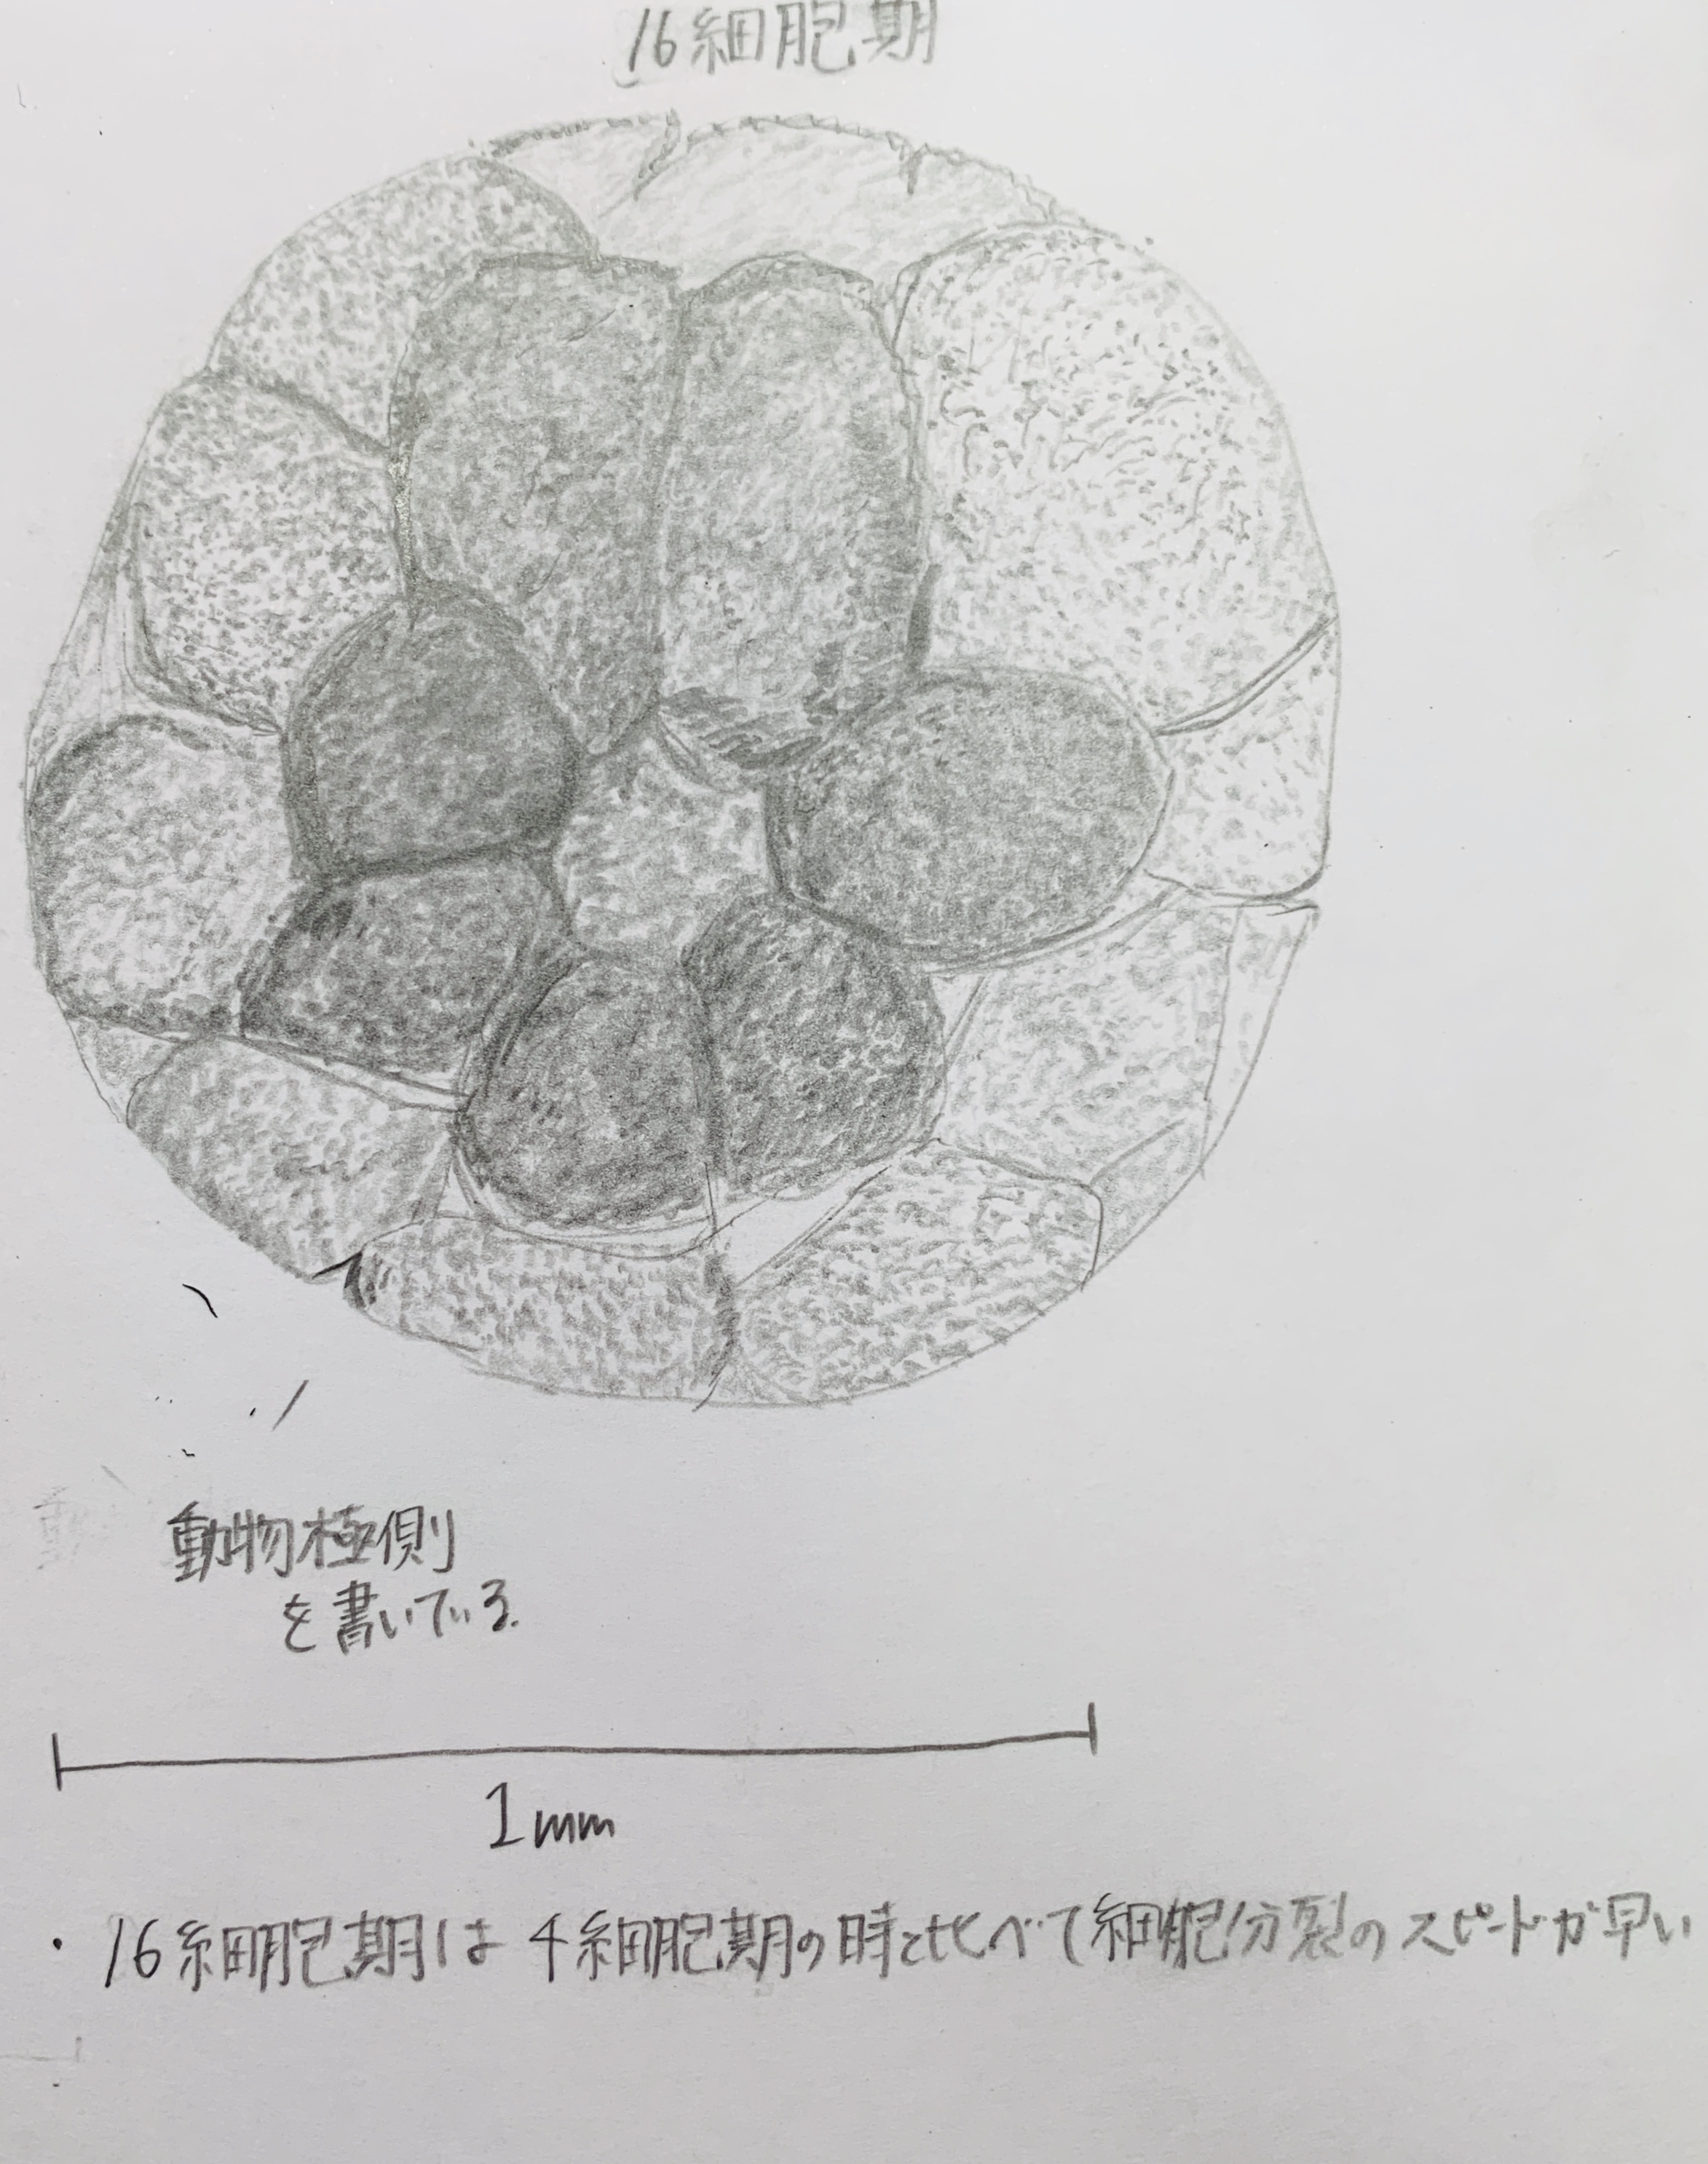 16細胞期
動物極側
を書いている.
1mm
・16細胞期は4細胞期の時と比べて細胞分裂のスピードが早い